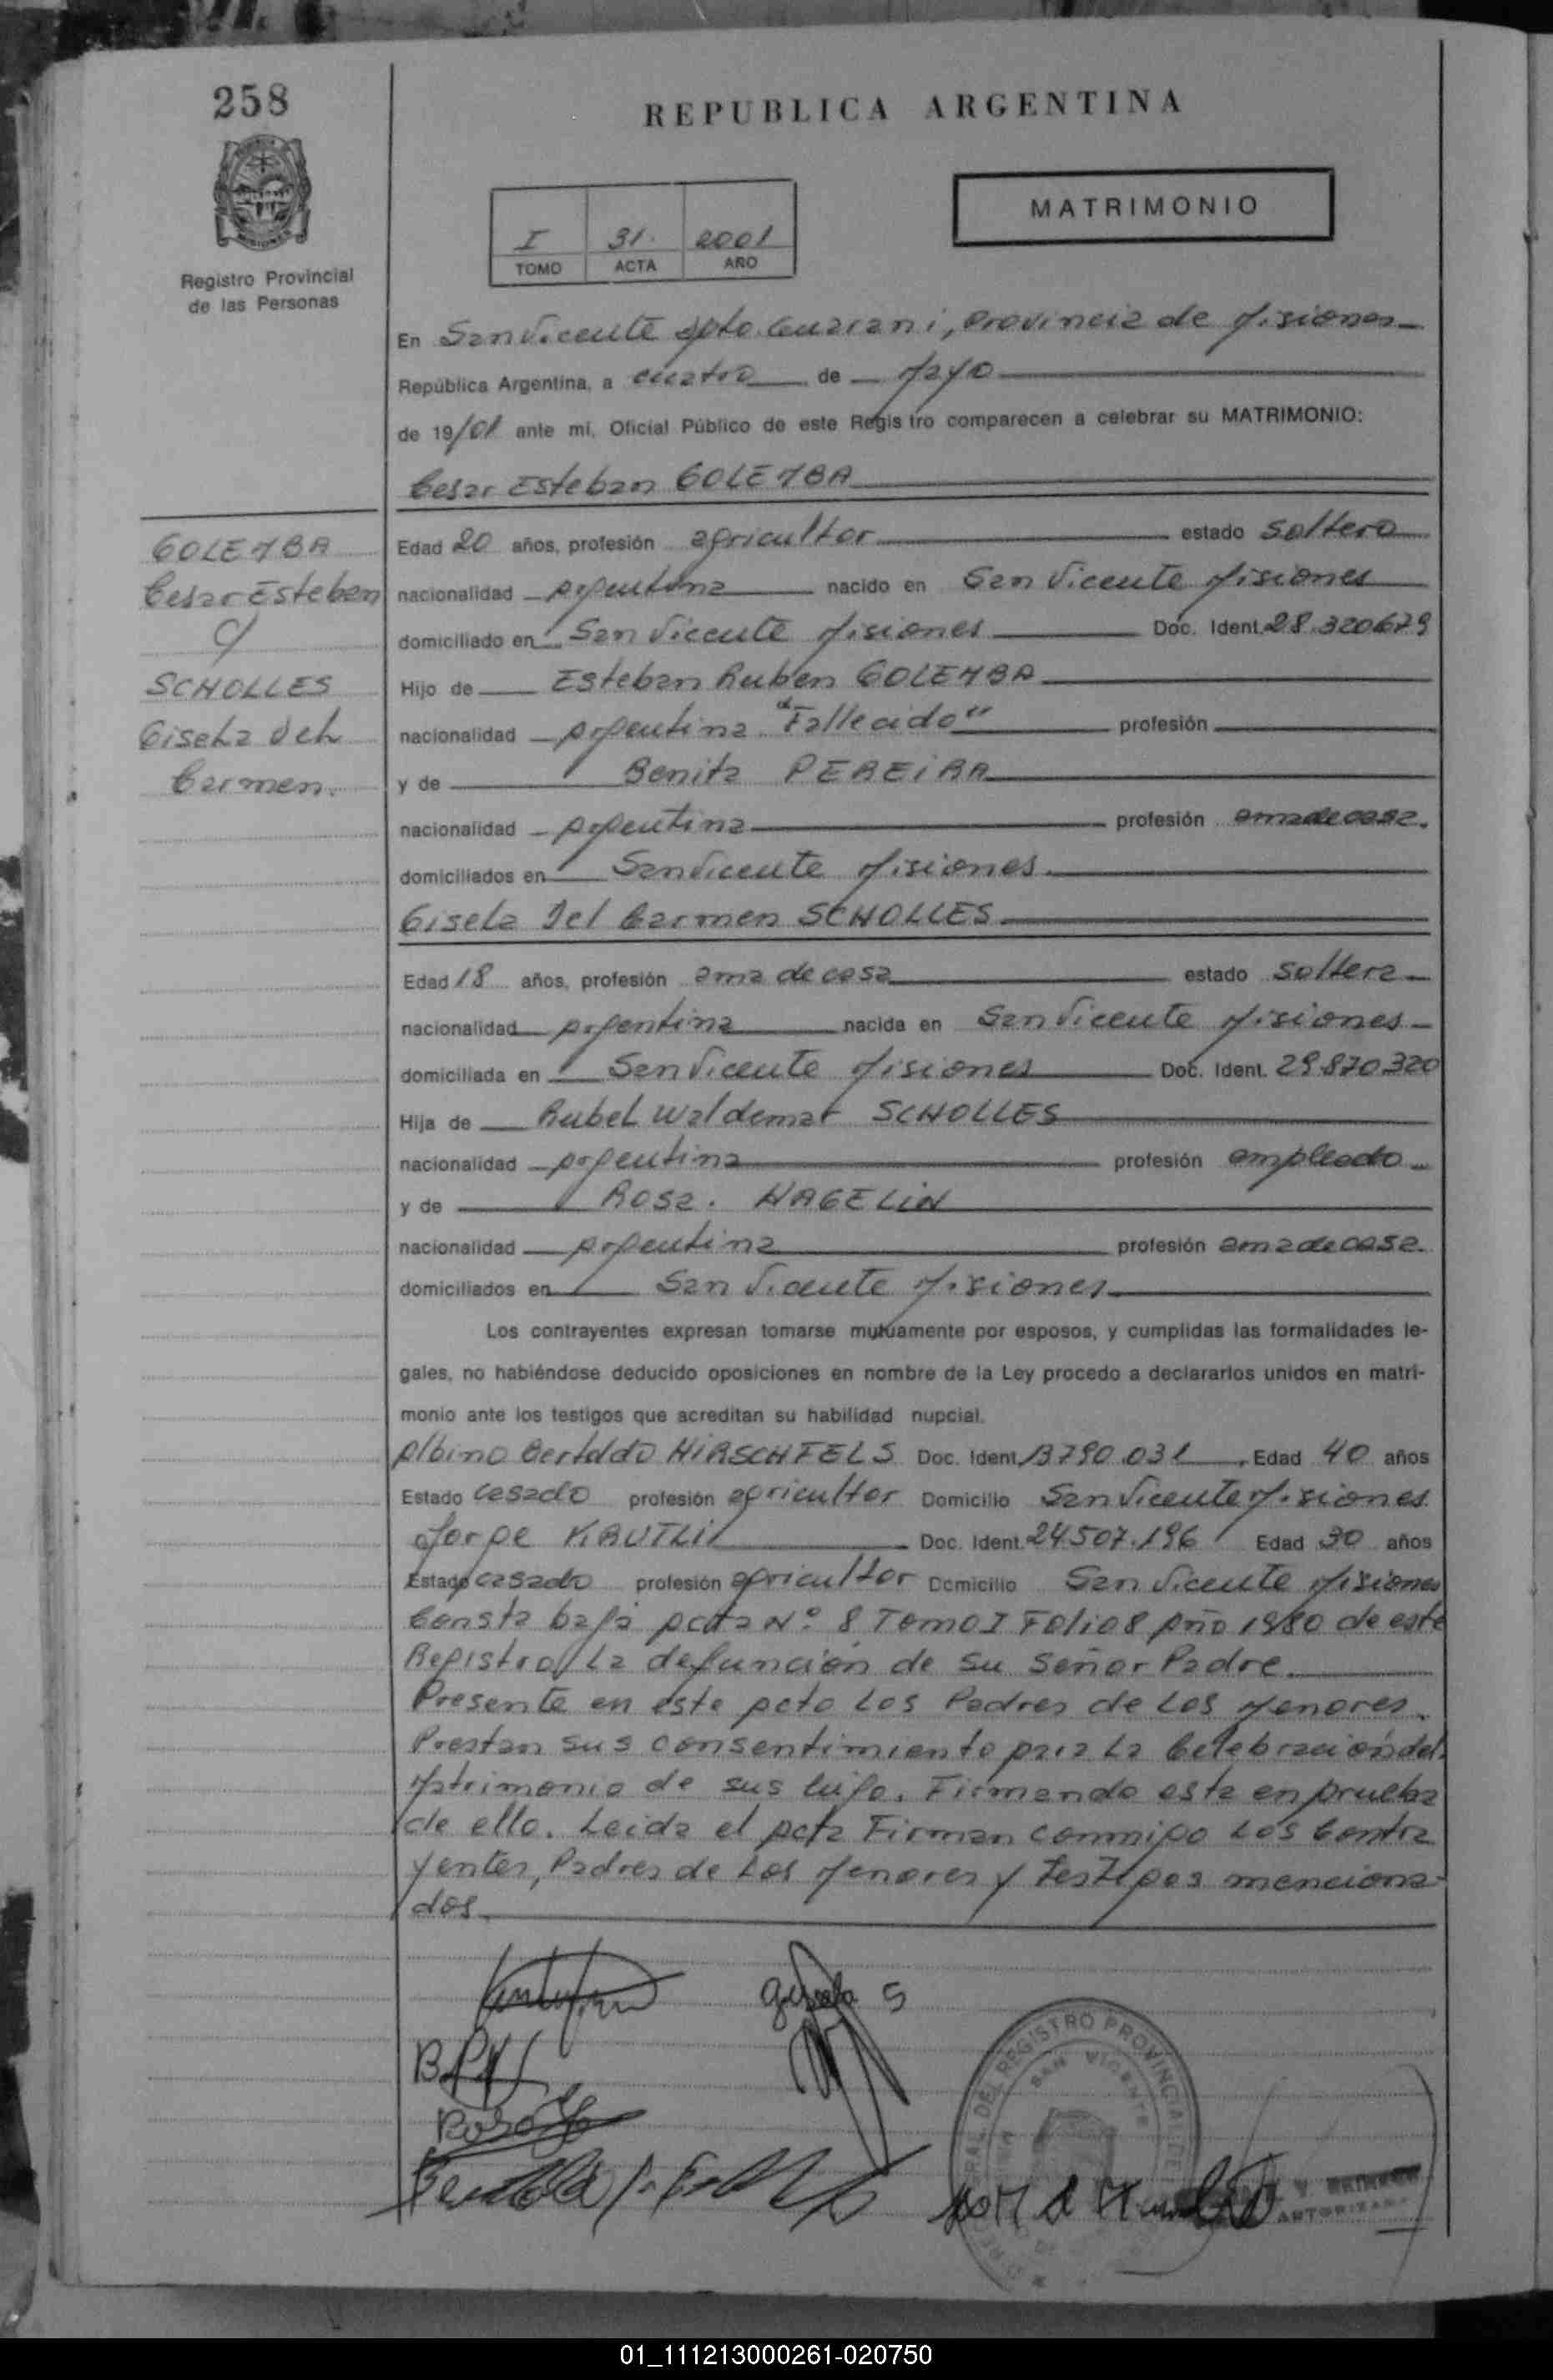 258
REPUBLICA ARGENTINA
MATRIMONIO
I 31. 2001
TOMO ACTA AÑO
Registro Provincial
de las Personas
En San Vicente Dpto. Guarani, Provincia de Misiones
República Argentina, a cuatro de Mayo
de 19/01 ante mi, Oficial Público de este Registro comparecen a celebrar su MATRIMONIO:
Cesar Esteban GOLEMBA
GOLEMBA
Cesar Esteban
c/
SCHOLLES
Gisela Del
Carmen.
Edad 20 años, profesión agricultor estado soltero
nacionalidad Argentina nacido en San Vicente Misiones
domiciliado en San Vicente Misiones Doc. Ident. 28.320679
Hijo de Esteban Ruben GOLEMBA
nacionalidad Argentina "Fallecido" profesión
y de Benita PEREIRA
nacionalidad Argentina profesión ama de casa.
domiciliados en San Vicente Misiones
Gisela Del Carmen SCHOLLES
Edad 18 años, profesión ama de casa estado soltera
nacionalidad Argentina nacida en San Vicente Misiones
domiciliada en San Vicente Misiones Doc. Ident. 29.870.320
Hija de Rubel Waldemar SCHOLLES
nacionalidad Argentina profesión empleado
y de Rosa. HAGELIN
nacionalidad Argentina profesión ama de casa.
domiciliados en San Vicente Misiones
Los contrayentes expresan tomarse mutuamente por esposos, y cumplidas las formalidades le-
gales, no habiéndose deducido oposiciones en nombre de la Ley procedo a declararlos unidos en matri-
monio ante los testigos que acreditan su habilidad nupcial.
Albino Bertoldo HIRSCHFELS Doc. Ident. 13790.031 Edad 40 años
Estado casado profesión agricultor Domicilio San Vicente Misiones
Jorge KRUTLI Doc. Ident. 24.507.196 Edad 30 años
Estado casado profesión agricultor Domicilio San Vicente Misiones
Consta bajo Acta Nº 8 Tomo I Folio 8 Año 1980 de este
Registro, la defunción de su Señor Padre.
Presente en este Acto los Padres de los Menores.
Prestan sus consentimiento para la Celebración del
Matrimonio de sus hijo. Firmando esta en prueba
de ello. Leida el Acta Firman conmigo los Contra
yentes, Padres de los Menores y Testigos menciona-
dos.
Gisela S
REGISTRO PROVINCIAL DE
SAN VICENTE
01_111213000261-020750